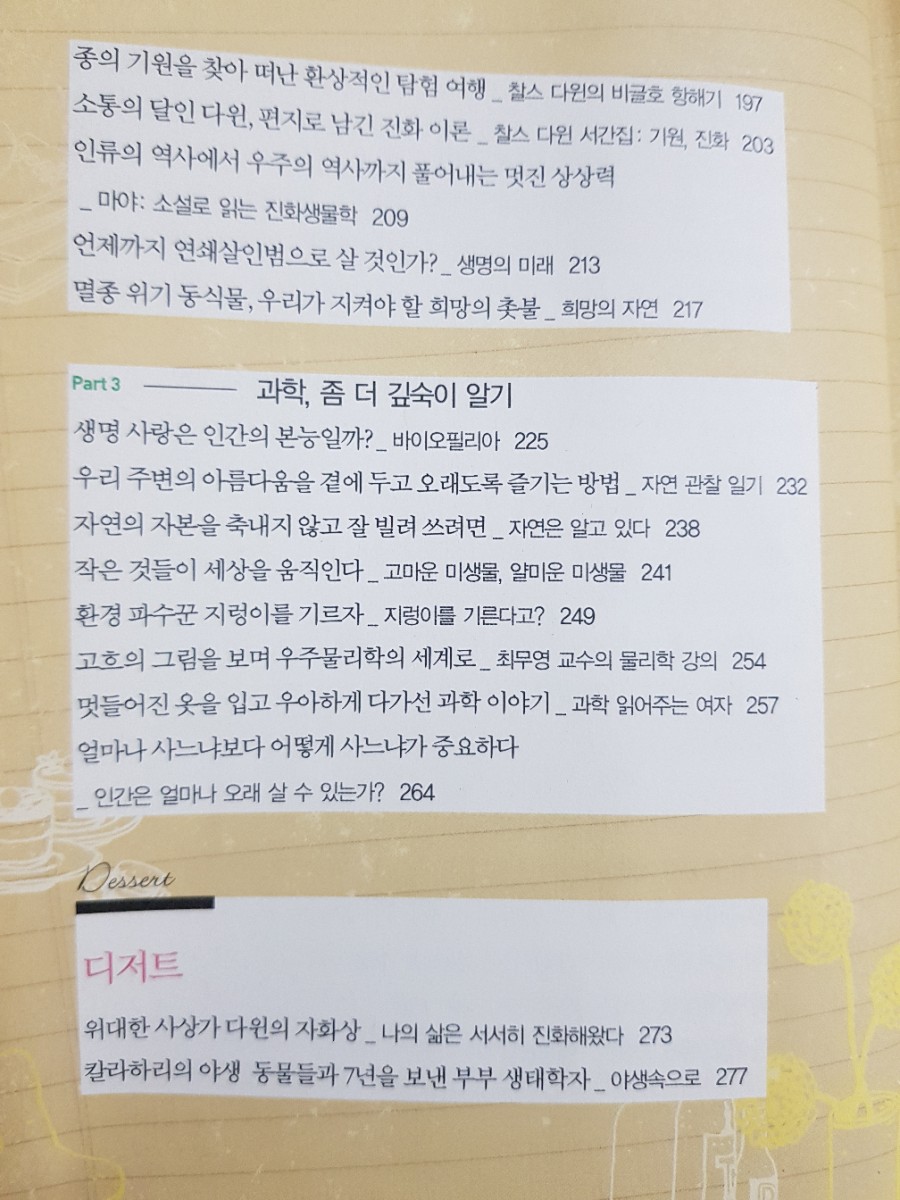 종의 기원을 찾아 떠난 환상적인 탐험 여행 _ 찰스 다윈의 비글호 항해기 197
소통의 달인 다윈, 편지로 남긴 진화 이론 _ 찰스 다윈 서간집: 기원, 진화 203
인류의 역사에서 우주의 역사까지 풀어내는 멋진 상상력
_ 마야: 소설로 읽는 진화생물학 209
언제까지 연쇄살인범으로 살 것인가? _ 생명의 미래 213
멸종 위기 동식물, 우리가 지켜야 할 희망의 촛불 _ 희망의 자연 217
Part 3 과학, 좀 더 깊숙이 알기
생명 사랑은 인간의 본능일까? _ 바이오필리아 225
우리 주변의 아름다움을 곁에 두고 오래도록 즐기는 방법 _ 자연 관찰 일기 232
자연의 자본을 축내지 않고 잘 빌려 쓰려면 _ 자연은 알고 있다 238
작은 것들이 세상을 움직인다 _ 고마운 미생물, 얄미운 미생물 241
환경 파수꾼 지렁이를 기르자 _ 지렁이를 기른다고? 249
고흐의 그림을 보며 우주물리학의 세계로 _ 최무영 교수의 물리학 강의 254
멋들어진 옷을 입고 우아하게 다가선 과학 이야기 _ 과학 읽어주는 여자 257
얼마나 사느냐보다 어떻게 사느냐가 중요하다
_ 인간은 얼마나 오래 살 수 있는가? 264
Dessert
디저트
위대한 사상가 다윈의 자화상 _ 나의 삶은 서서히 진화해왔다 273
칼라하리의 야생 동물들과 7년을 보낸 부부 생태학자 _ 야생속으로 277